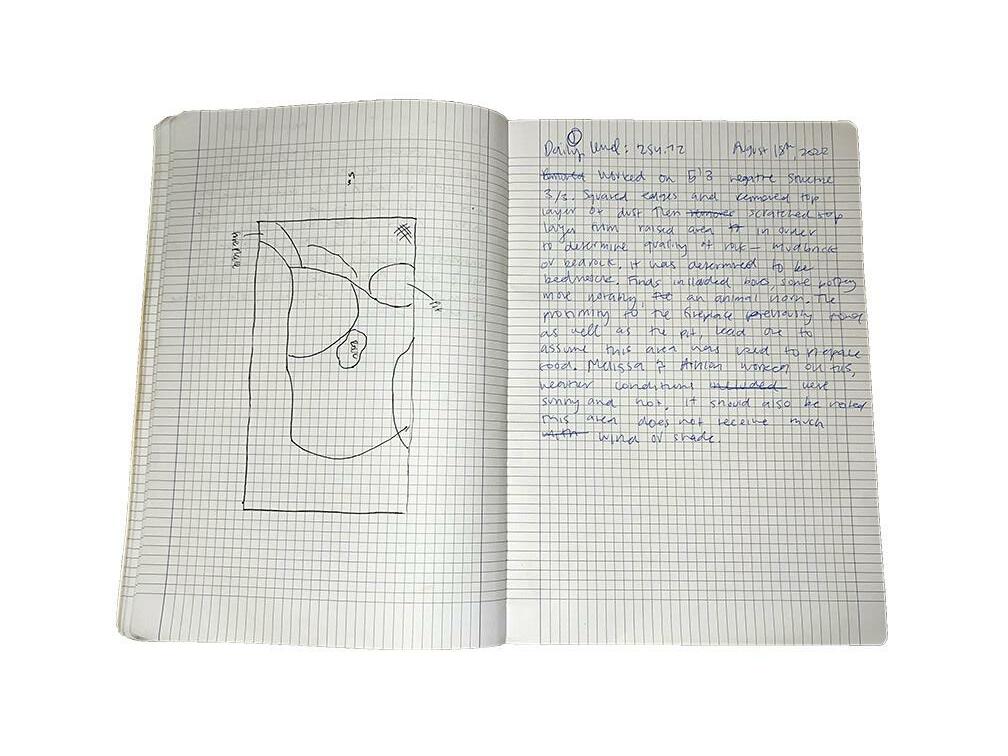 ① Daily level: 254.72 August 15th, 2022
Removed Worked on 5'3 negative structure
3/3. Squared edges and removed top
layer of dust then remove scratched top
layer from raised area in order
to determine quality of rock – mudbrick
or bedrock. It was determined to be
bedrock. Finds included bones, some pottery
more notably, an animal horn. The
proximity to the fireplace previously found
as well as the pit lead one to
assume this area was used to prepare
food. Melissa & worked on this,
weather conditions included were
sunny and hot. It should also be noted
this area does not receive much
with wind or shade.